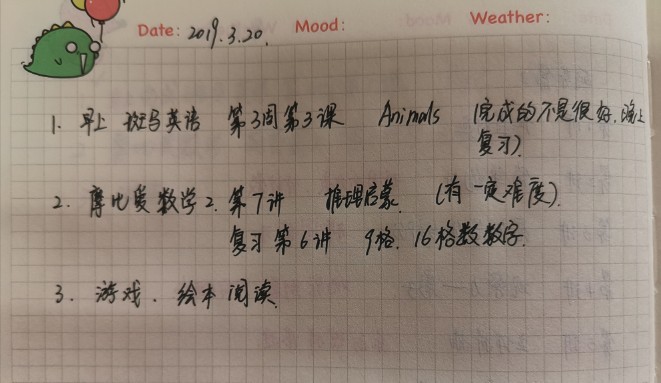 Date: 2019.3.20. Mood: Weather:
1. 早上 斑马英语 第3周第3课 Animals (完成的不是很好,晚上
复习).
2. 摩比爱数学2. 第7讲 推理启蒙. (有一定难度).
复习第6讲 9格. 16格数数字.
3. 游戏. 绘本阅读.